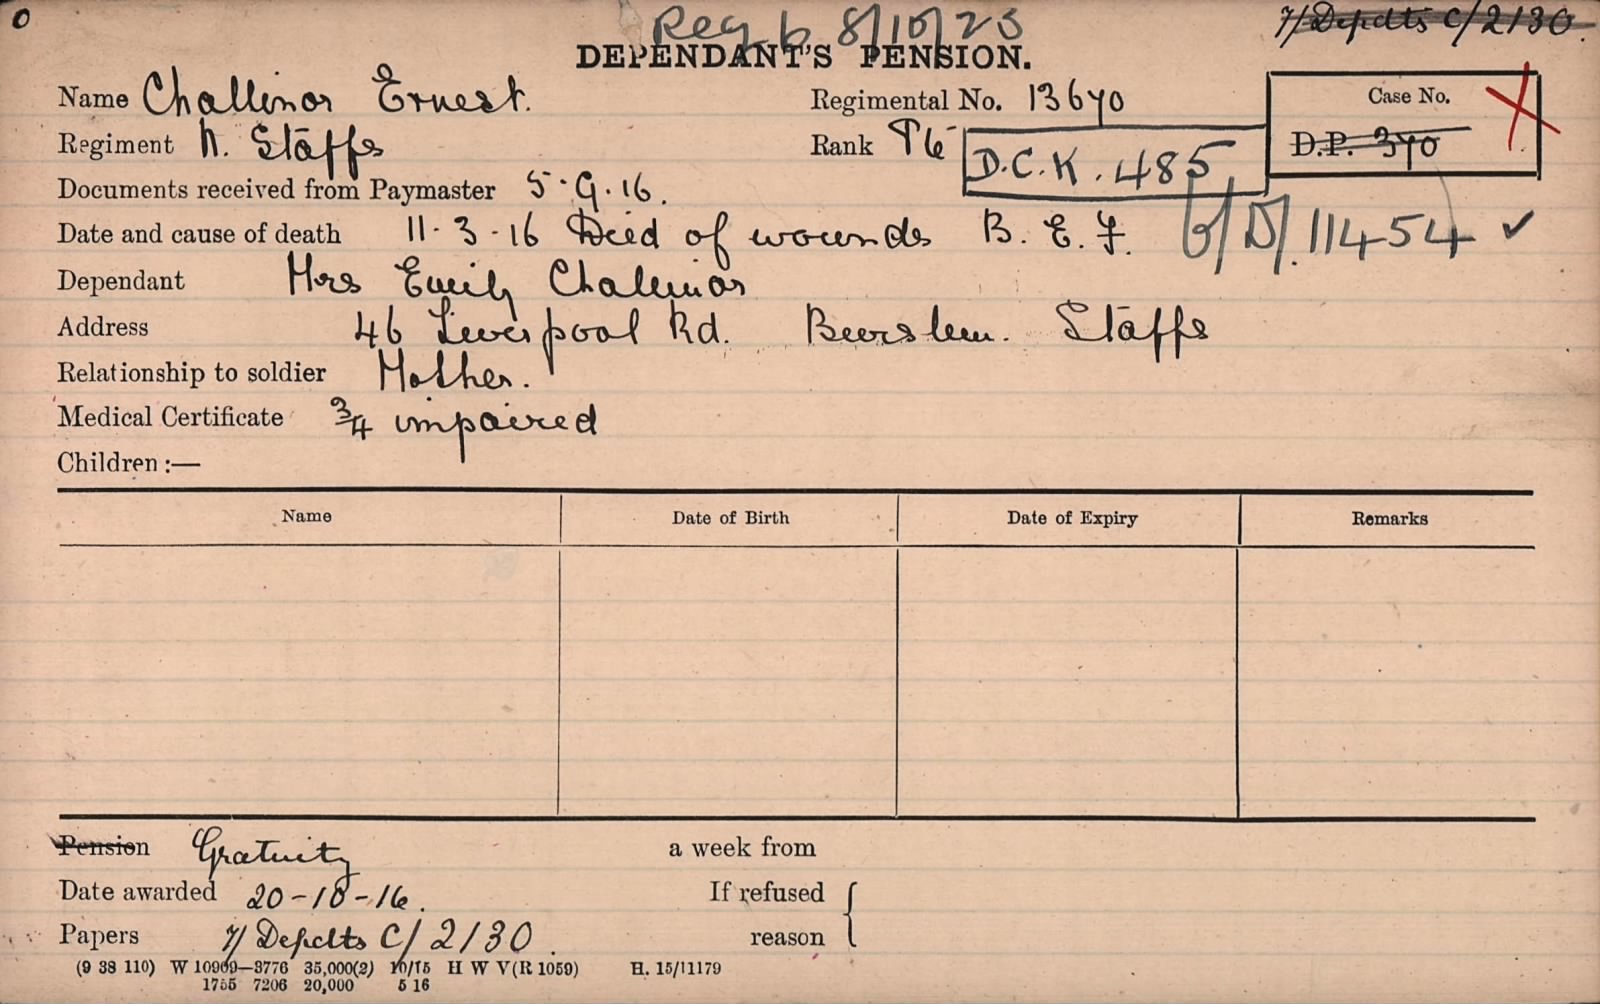 0
Reg 6 8/10/23
7/ Depdts C/2130.
DEPENDANT'S PENSION.
Name Challinor Ernest. Regimental No. 13670 Case No.
Regiment N. Staffs Rank Pte D.C.K. 485 D.P. 370
Documents received from Paymaster 5.9.16.
Date and cause of death 11.3.16 Died of wounds B.E.F. 6/D/.11454 ✓
Dependant Mrs Emily Challinor
Address 46 Liverpool Rd. Burslem. Staffs
Relationship to soldier Mother.
Medical Certificate 3/4 impaired
Children :—
Name Date of Birth Date of Expiry Remarks
Pension Gratuity a week from
Date awarded 20-10-16. If refused
Papers 7/ Depdts C/2130. reason
(9 38 110) W 10909—3776 35,000(2) 10/15 H W V(R 1059) H. 15/11179
1755 7206 20,000 5 16